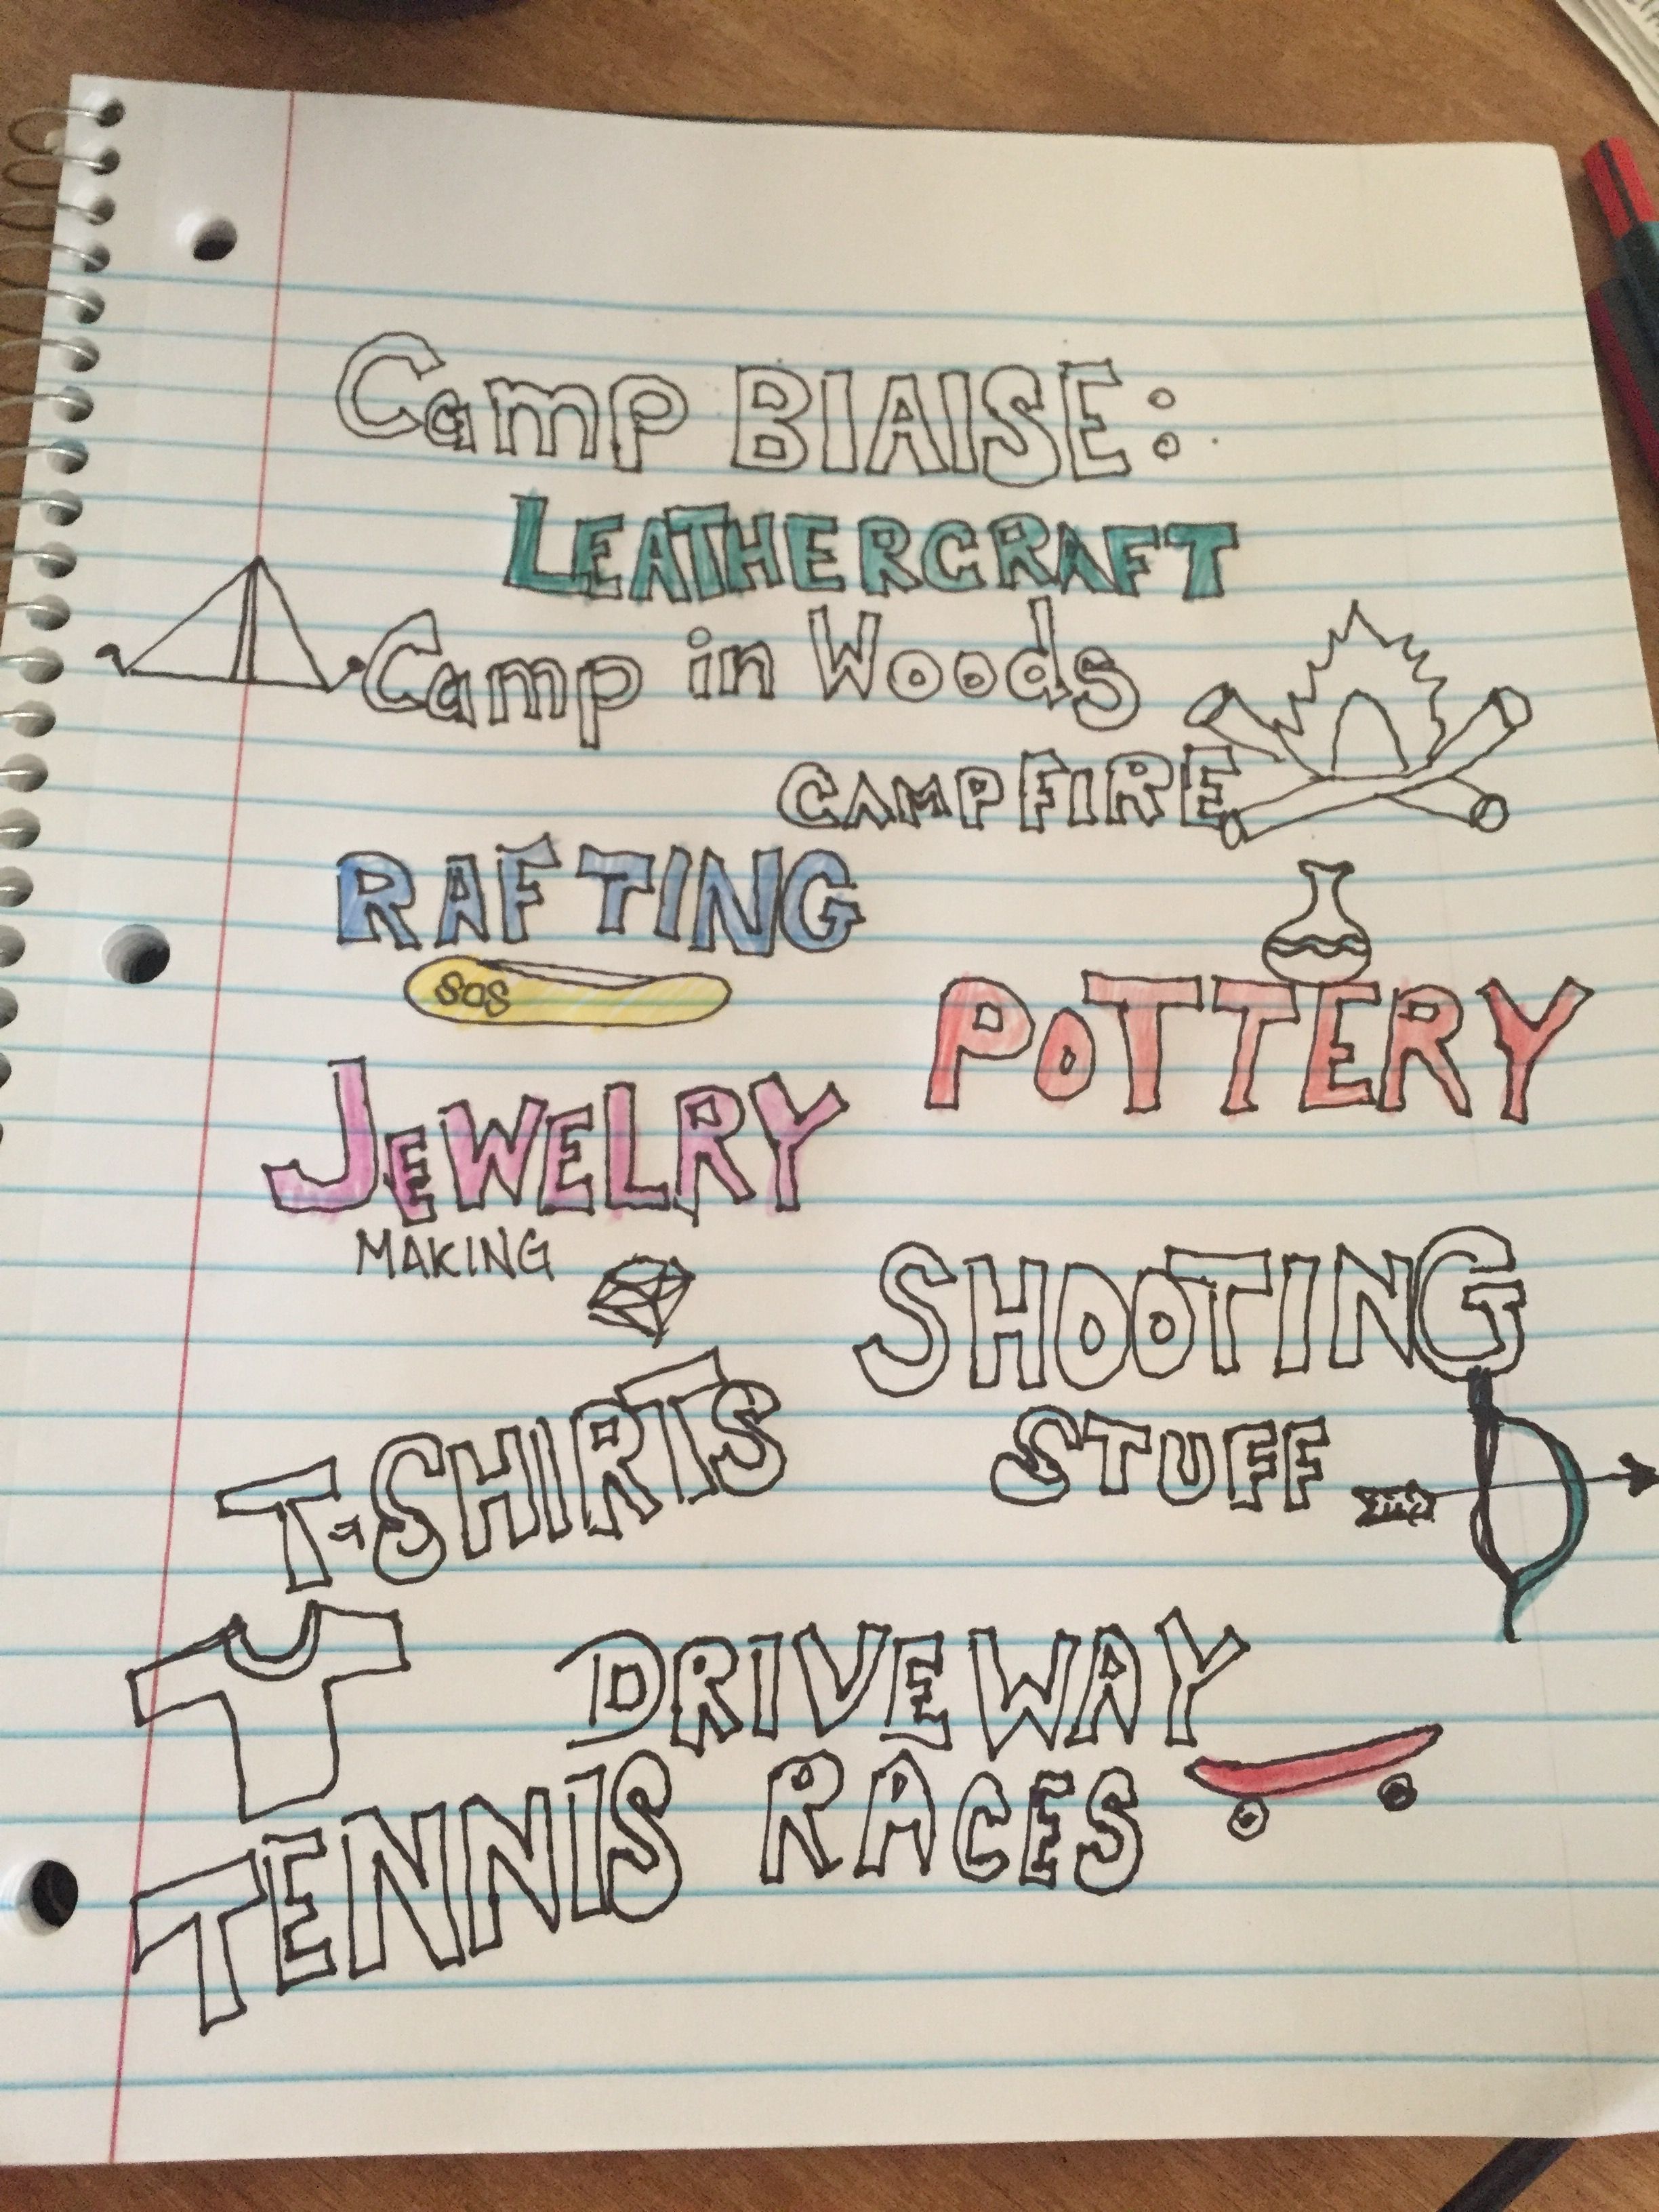 Camp BlAISE:
LEATHERCRAFT
Camp in Woods
CAMPFIRE
RAFTING
SOS
POTTERY
JEWELRY
MAKING
SHOOTING
STUFF
T-SHIRTS
DRIVEWAY
RACES
TENNIS